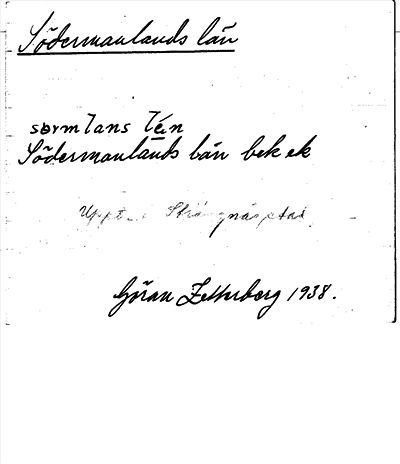 Södermanlands län
sørmlans lé̱n
Södermanlands län bek ek
Uppt. i Strängnäs stad
Göran Zetterberg 1938.